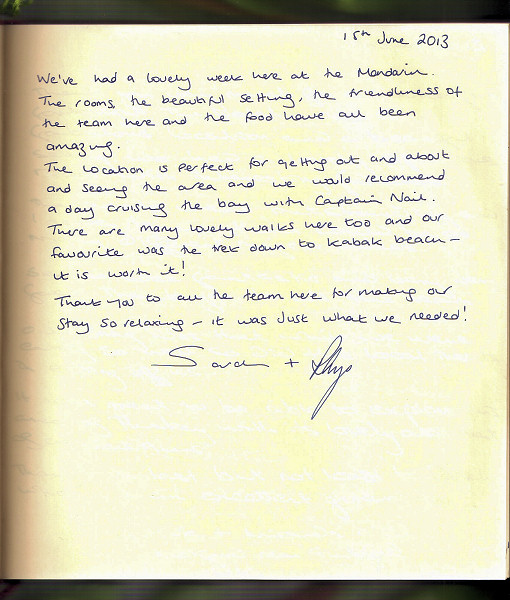 15th June 2013
We've had a lovely week here at the Mandarin.
The rooms, the beautiful setting, the friendliness of
the team here and the food have all been
amazing.
The location is perfect for getting out and about
and seeing the area and we would recommend
a day cruising the bay with Captain Nail.
There are many lovely walks here too and our
favourite was the trek down to Kabak beach -
it is worth it!
Thank you to all the team here for making our
stay so relaxing - it was just what we needed!
Sarah + Rhys